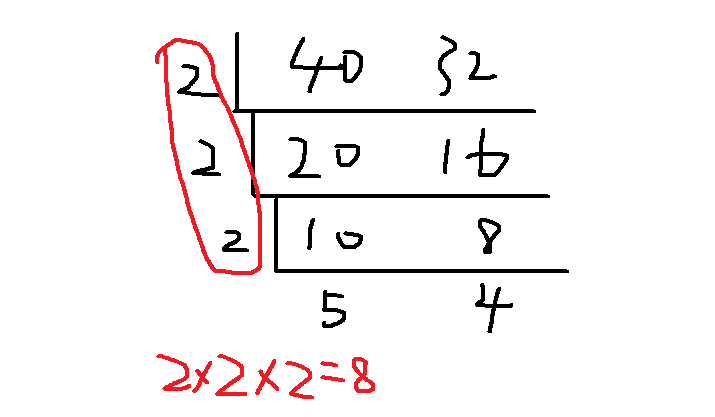 2 40 32
2 20 16
2 10 8
5 4
2×2×2=8